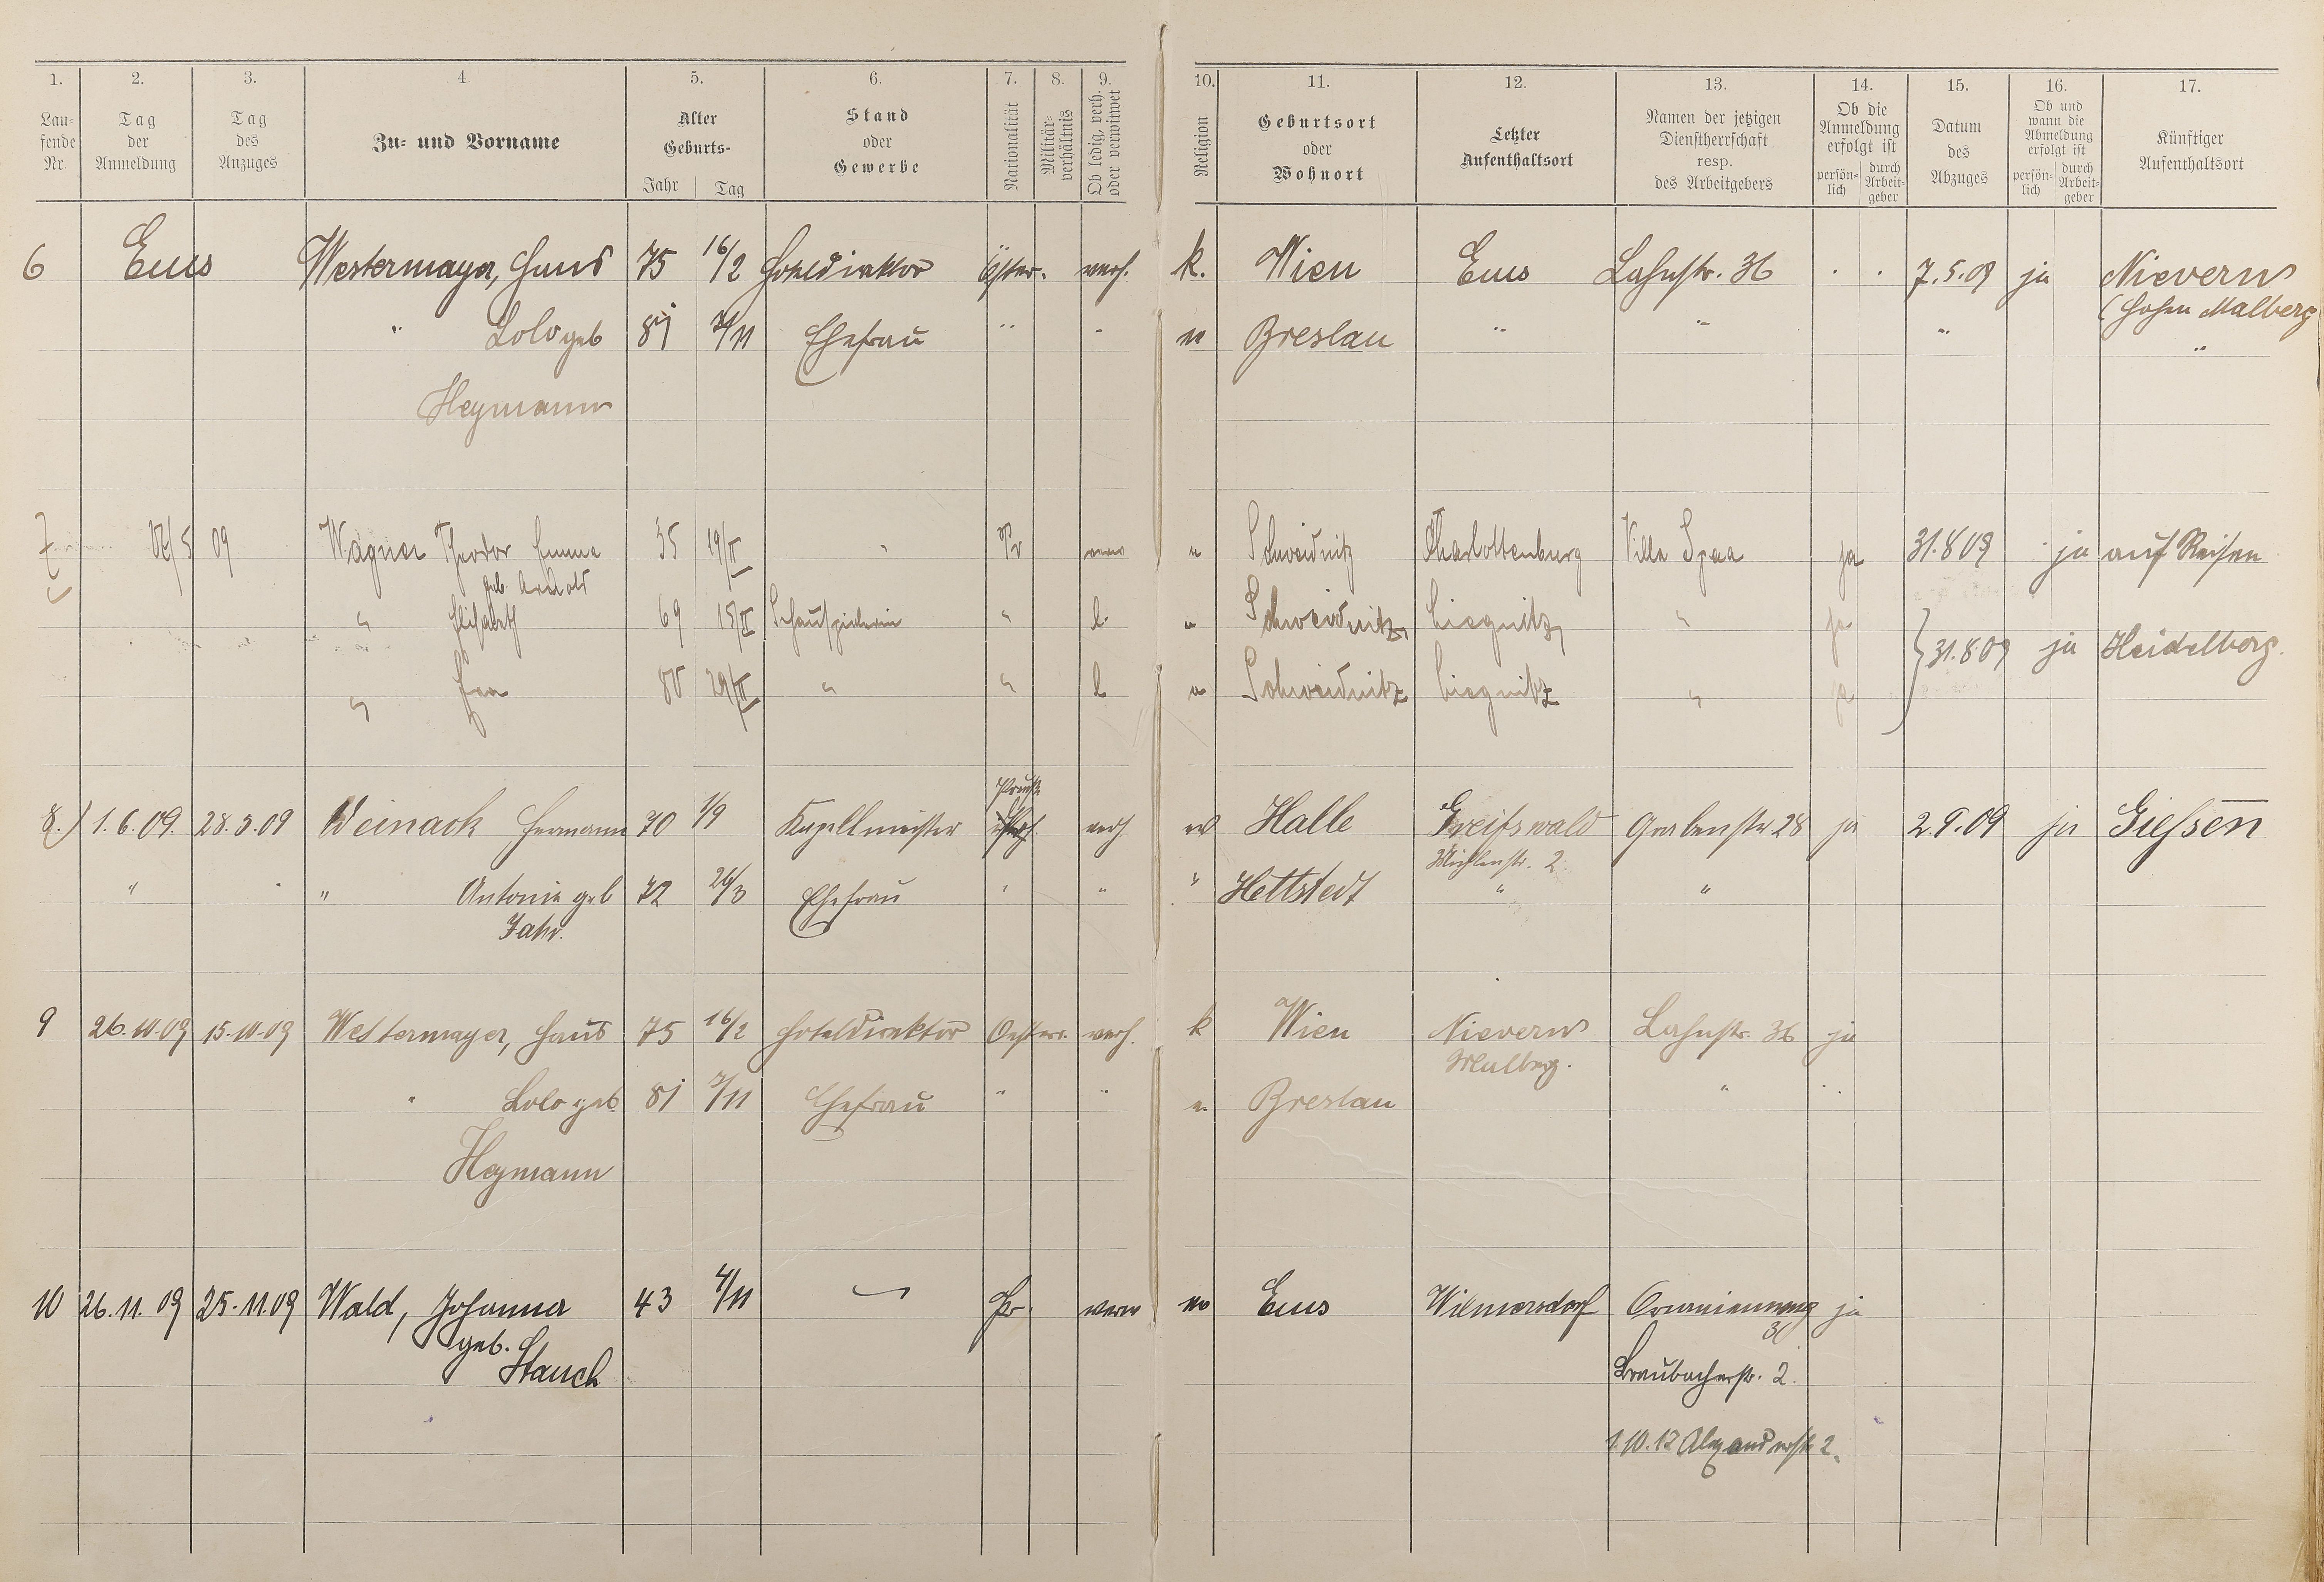 1. 2. 3. 4. 5. 6. 7. 8. 9. 10. 11. 12. 13. 14. 15. 16. 17.
Lau-
fende
Nr.
Tag
der
Anmeldung
Tag
des
Anzuges
Zu- und Vorname
Alter
Geburts-
Jahr Tag
Stand
oder
Gewerbe
Nationalität
Militär-
verhältnis
Ob ledig, verh.
oder verwitwet
Religion
Geburtsort
oder
Wohnort
Letzter
Aufenthaltsort
Namen der jetzigen
Dienstherrschaft
resp.
des Arbeitgebers
Ob die
Anmeldung
erfolgt ist
persön-
lich
durch
Arbeit-
geber
Datum
des
Abzuges
Ob und
wann die
Abmeldung
erfolgt ist
persön-
lich
durch
Arbeit-
geber
Künftiger
Aufenthaltsort
6 Ems Westermayer, Hans 75 16/2 Hoteldirektor Öster. verh. k. Wien Ems Lahnstr. 36 . . 7.5.09 ja Nievern
(Hohen Malberg
" Lolo geb 81 7/11 Ehefrau " " Breslau " " " "
Heymann
7 5 09 Wagner Theodor Emma 35 19/II " Pr Schweidnitz Charlottenburg Villa Spaa ja 31.8 09 ja auf Reisen
geb. Arnold
" Elisabeth 69 15/II Schauspielerin " l. Schweidnitz Liegnitz " ja
} 31.8.09 ja Heidelberg.
" Eva 80 29/II " " l Schweidnitz Liegnitz " ja
Preuß.
8.) 1.6.09. 28.5.09 Weinack Hermann 70 1/9 Kapellmeister verh. ev Halle Greifswald Grabenstr 28 ja 2.9.09 ja Giessen
Mühlenstr. 2.
" " Antonie geb 72 26/3 Ehefrau " " " Hettstedt " "
Jahr.
9 26.10.09 15.10.09 Westermayer, Hans 75 16/2 Hoteldirektor Oesterr. verh. k Wien Nievern Lahnstr. 36 ja
Malberg.
" Lolo geb. 81 7/11 Ehefrau " " Breslau "
Heymann
10 26.11.09 25.11.09 Wald, Johanna 43 4/11 Pr. verw ev Ems Wilmersdorf Oranienweg ja
geb.
Stauch
Braubacherstr. 2.
1.10.12 Alexanderstr 2.